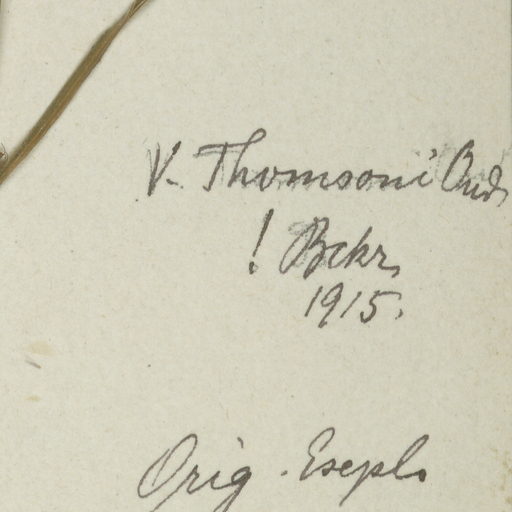 V. Thomsoni Oud.
! Bckr.
1915.
Orig. Exepl.